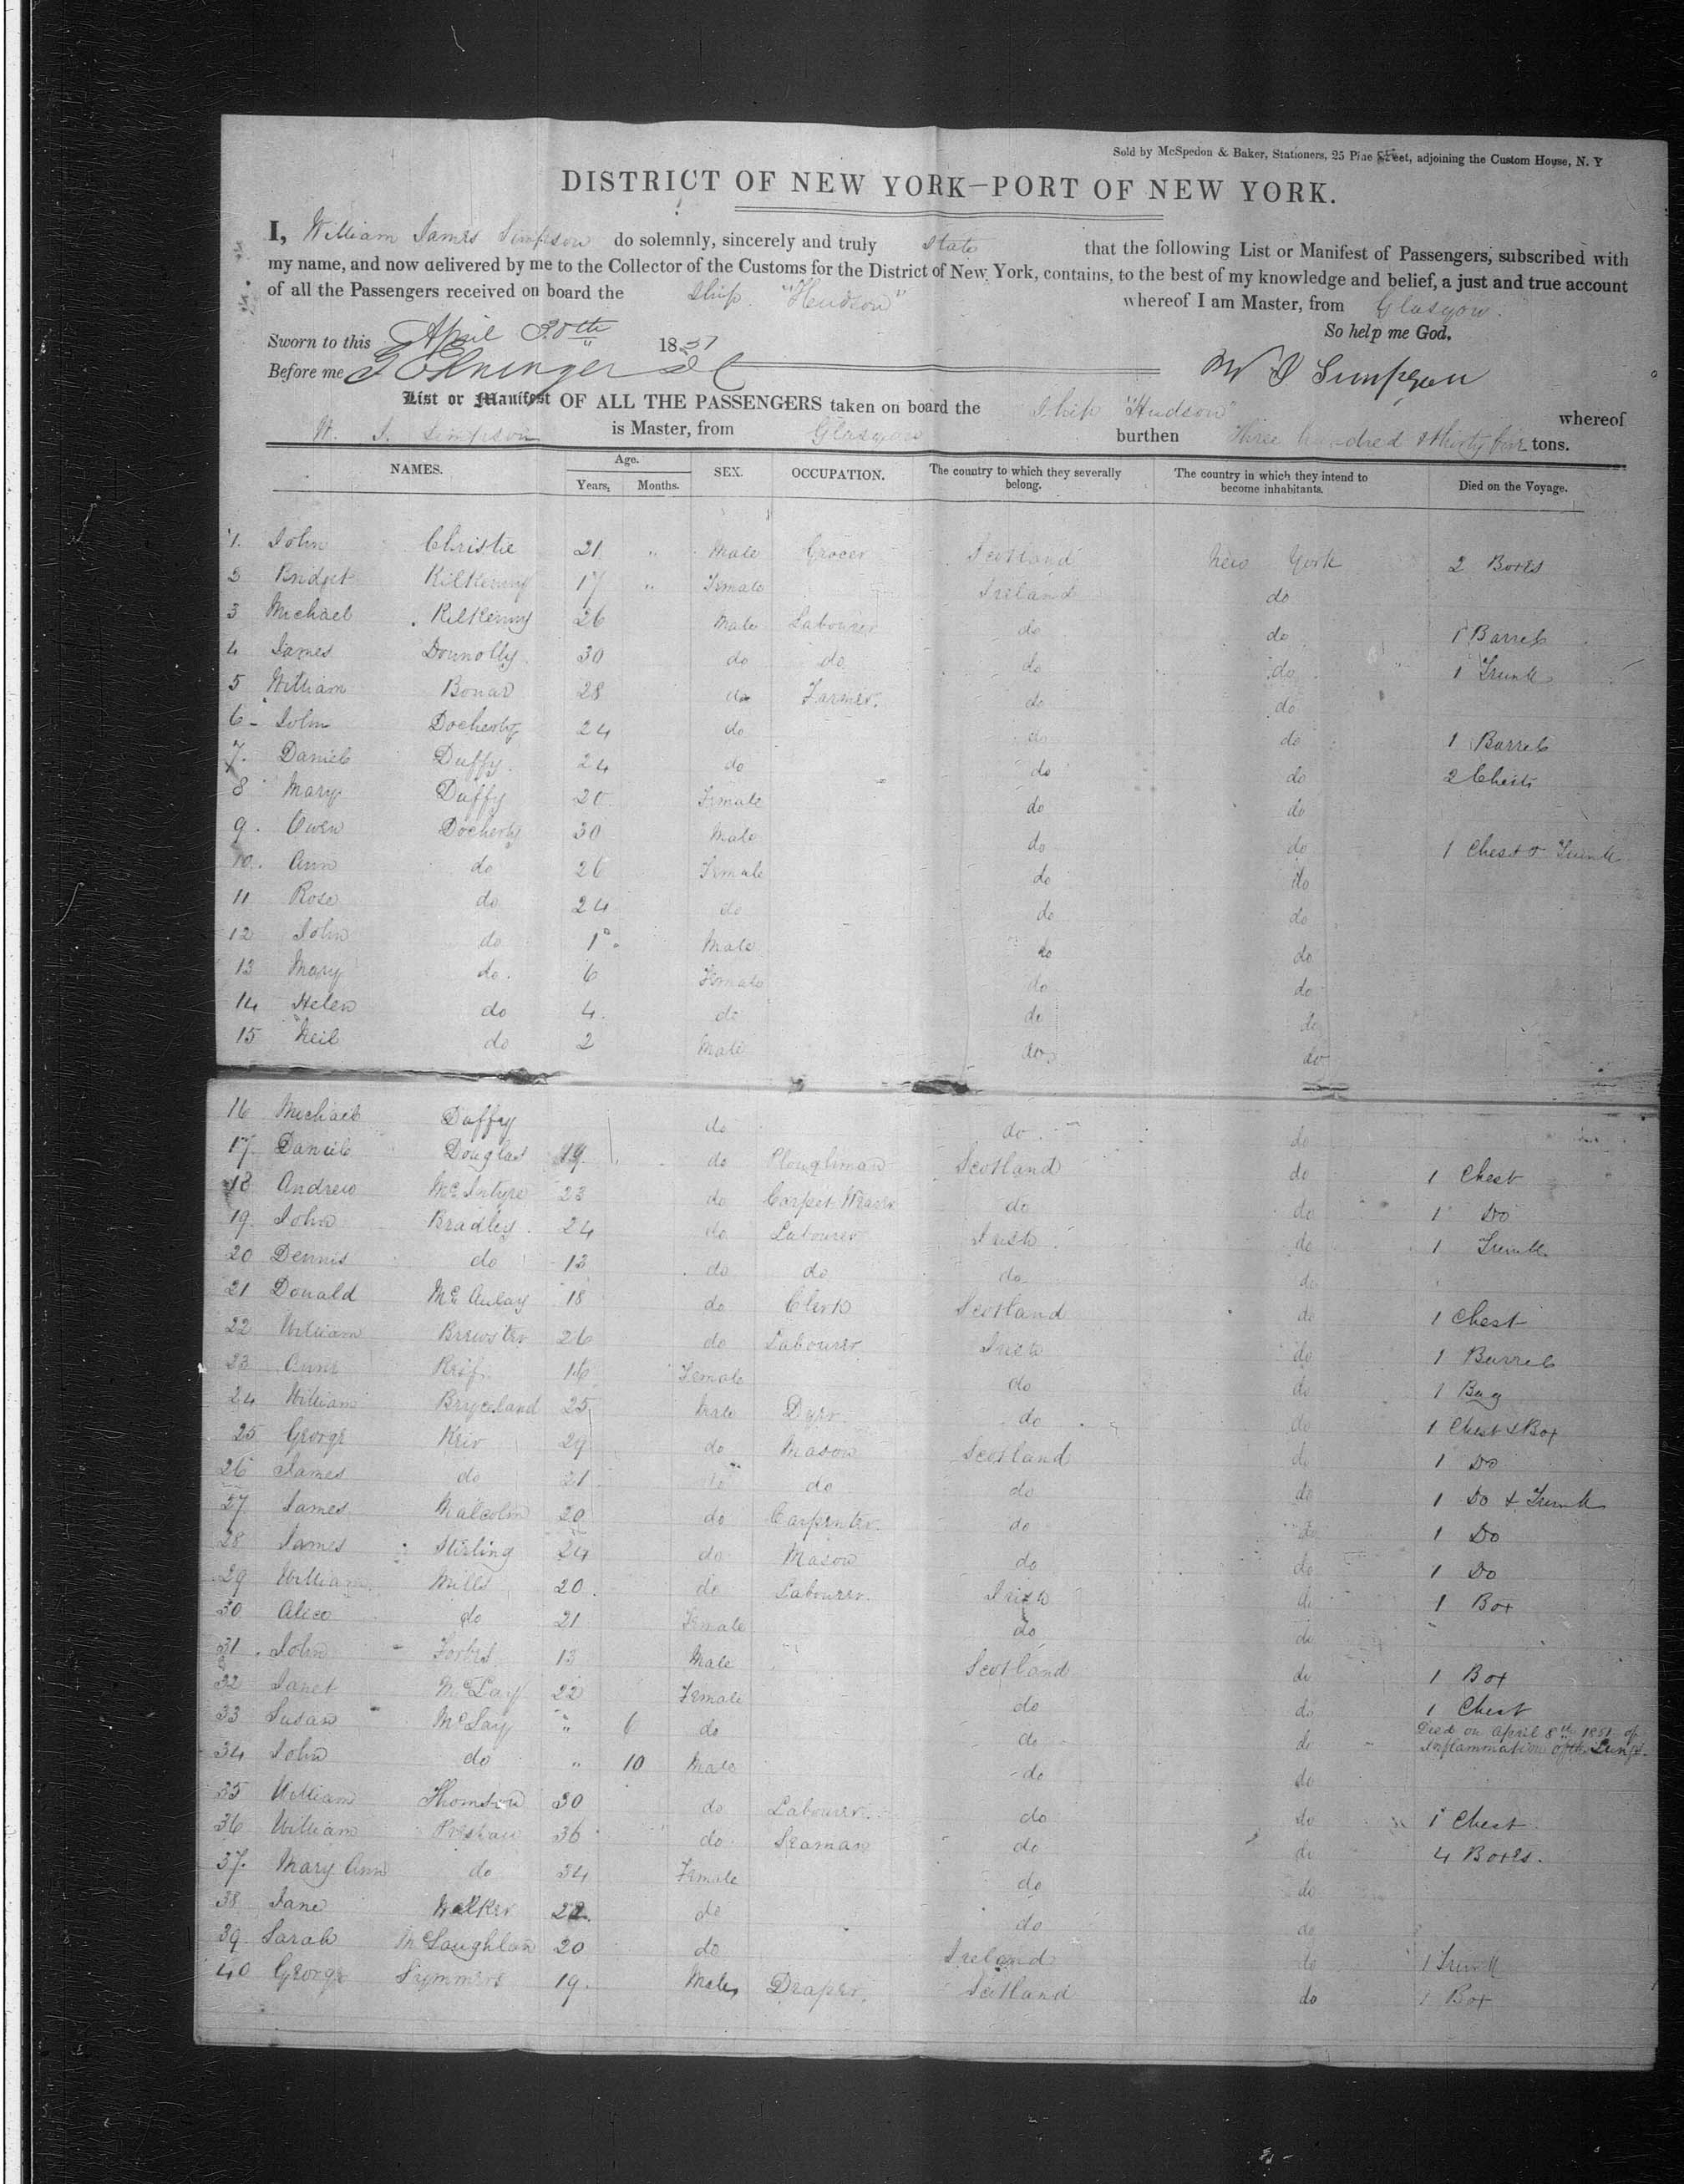 Sold by McSpedon & Baker, Stationers, 25 Pine Street, adjoining the Custom House, N. Y
DISTRICT OF NEW YORK—PORT OF NEW YORK.
I, William James Simpson do solemnly, sincerely and truly state that the following List or Manifest of Passengers, subscribed with
my name, and now delivered by me to the Collector of the Customs for the District of New York, contains, to the best of my knowledge and belief, a just and true account
of all the Passengers received on board the Ship "Hudson" whereof I am Master, from Glasgow.
So help me God.
Sworn to this April 30th 1851
Before me
W J Simpson
List or Manifest OF ALL THE PASSENGERS taken on board the Ship "Hudson" whereof
W. J. Simpson is Master, from Glasgow burthen Three hundred & thirty five tons.
NAMES. Age. Years. Months. SEX. OCCUPATION. The country to which they severally belong. The country in which they intend to become inhabitants. Died on the Voyage.
1. John Christie 21 " Male Grocer Scotland New York 2 Boxes
2 Bridget Kilkenny 17 " Female Ireland do
3 Michael Kilkenny 26 Male Labourer do do 1 Barrel
4 James Donnolly 30 do do do do 1 Trunk
5 William Bonar 28 do Farmer. do do
6 John Docherty 24 do do do 1 Barrel
7. Daniel Duffy 24 do do do 2 Chests
8 Mary Duffy 20 Female do do
9. Owen Docherty 30 Male do do 1 Chest & Trunk
10. Ann do 26 Female do do
11 Rose do 24 do do do
12 John do Male do do
13 Mary do. 6 Female do do
14 Helen do 4. do do do
15 Neil do 2 Male do do
16 Michael Duffy do do do
17. Daniel Douglas 19. do Ploughman Scotland do 1 Chest
18 Andrew McIntyre 23 do Carpet Weaver do do 1 Do
19. John Bradley. 24 do Labourer Irish do 1 Trunk
20 Dennis do 13 do do do do
21 Donald McAulay 18 do Clerk Scotland do 1 Chest
22 William Brewster 26 do Labourer Irish do 1 Barrel
23 16 Female do do 1 Bag
24 William Bryceland 25 Male Dyer do do 1 Chest & Box
25 George Keir 29 do Mason Scotland do 1 Do
26 James do 21 do do do do 1 Do & Trunk
27 James Malcolm 20 do Carpenter do do 1 Do
28 James Stirling 24 do Mason do do 1 Do
29 William Mills 20 do Labourer. Irish do 1 Box
30 Alice do 21 Female do do
31. John Forbes 13 Male Scotland do 1 Box
32 Janet McLay 22 Female do do 1 Chest
33 Susan McLay " 6 do do do Died on April 8th 1851 of Inflammation of the Lungs.
34 John do " 10 Male do do
35 William Thomson 30 do Labourer. do do 1 Chest
36 William 36 do Seaman do do 4 Boxes.
37. Mary Ann do 34 Female do do
38 Jane Walker 22 do do do
39. Sarah McLaughlan 20 do Ireland do 1 Trunk
40 George Symmers 19. Male Draper. Scotland do 1 Box